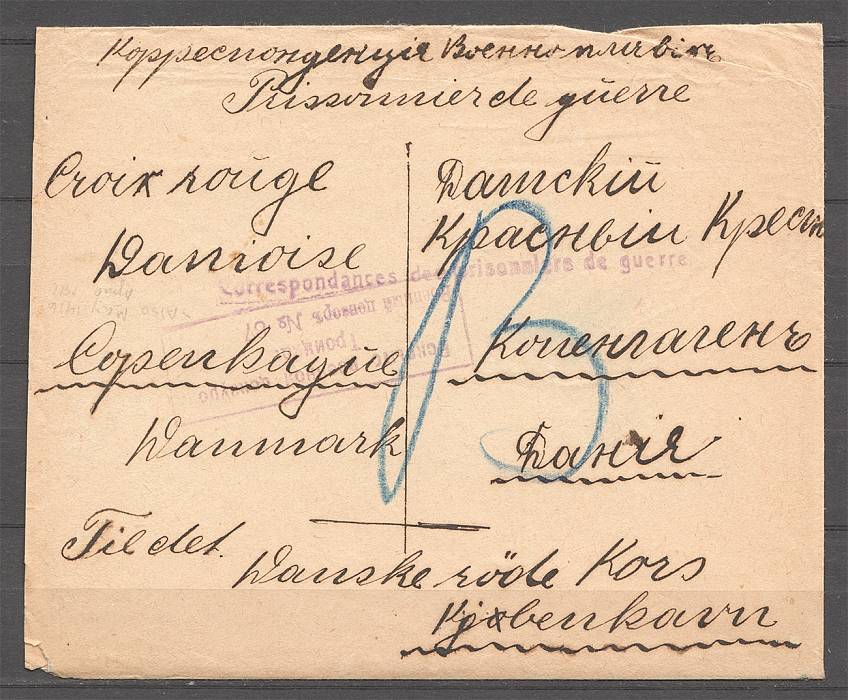 Корреспонденція Военноплѣннъ
Prissonnier de guerre
Croix rouge
Danioise
Copenhague
Danmark
Датскій
Красный Крестъ
Копенгагенъ
Данія
Correspondances des prisonniers de guerre
Военный цензоръ № 67
Til det.
Danske röde Kors
Kjöbenkavn